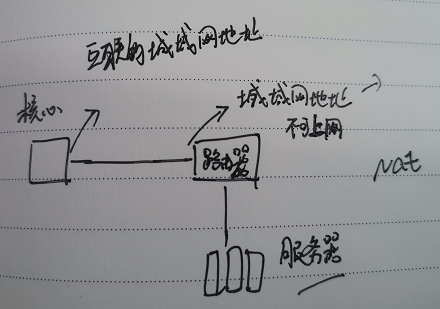 互联的城域网地址
核心
城域网地址
不可上网
路由器
Nat
服务器